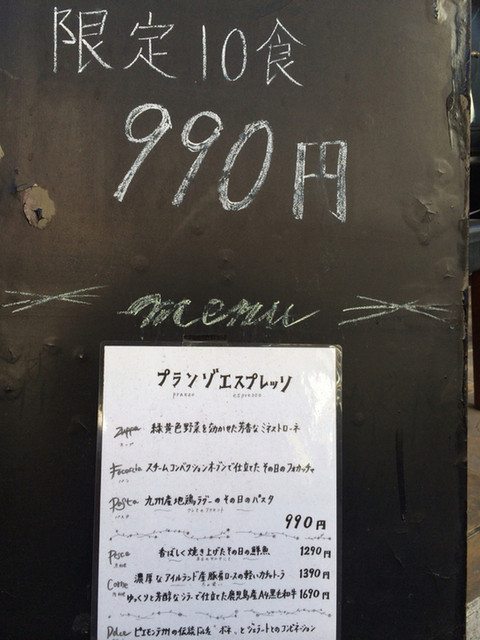 限定10食
990円
menu
プランゾエスプレッソ
pranzo espresso
Zuppa 緑黄色野菜を効かせた芳香なミネストローネ
スープ
Focaccia スチームコンベクションオーブンで仕立てた その日のフォカッチャ
パン
Pasta 九州産地鶏ラグーのその日のパスタ
パスタ
990円
Pesce 香ばしく焼き上げたその日の鮮魚 1290円
Carne 濃厚なアイルランド産豚肩ロースの軽いカチャトーラ 1390円
ゆっくりと芳醇なシラーで仕立てた鹿児島産A4黒毛和牛 1690円
Dolce ピエモンテ州の伝統Dolce "ボネ" とジェラートとのコンビネーション